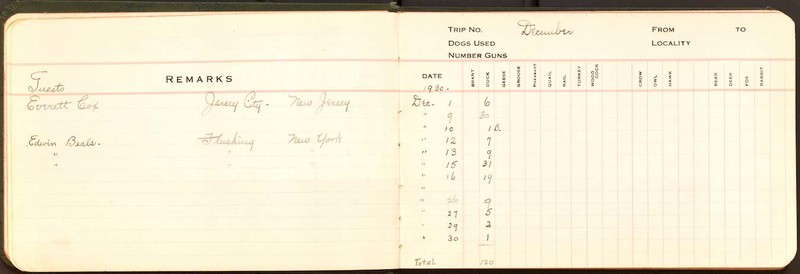 Guests
REMARKS
Everett Cox Jersey City - New Jersey
Edwin Beals - Flushing New York
" " "
TRIP NO. December FROM TO
DOGS USED LOCALITY
NUMBER GUNS
DATE BRANT DUCK GEESE GROUSE Pheasant QUAIL RAIL TURKEY WOOD COCK CROW OWL HAWK BEAR DEER FOX RABBIT
1930.
Dec. 1 6
" 9 30
" 10 1 B.
" 12 7
" 13 9
" 15 31
" 16 19
"
" 26 9
" 27 5
" 29 2
" 30 1
Total. 120